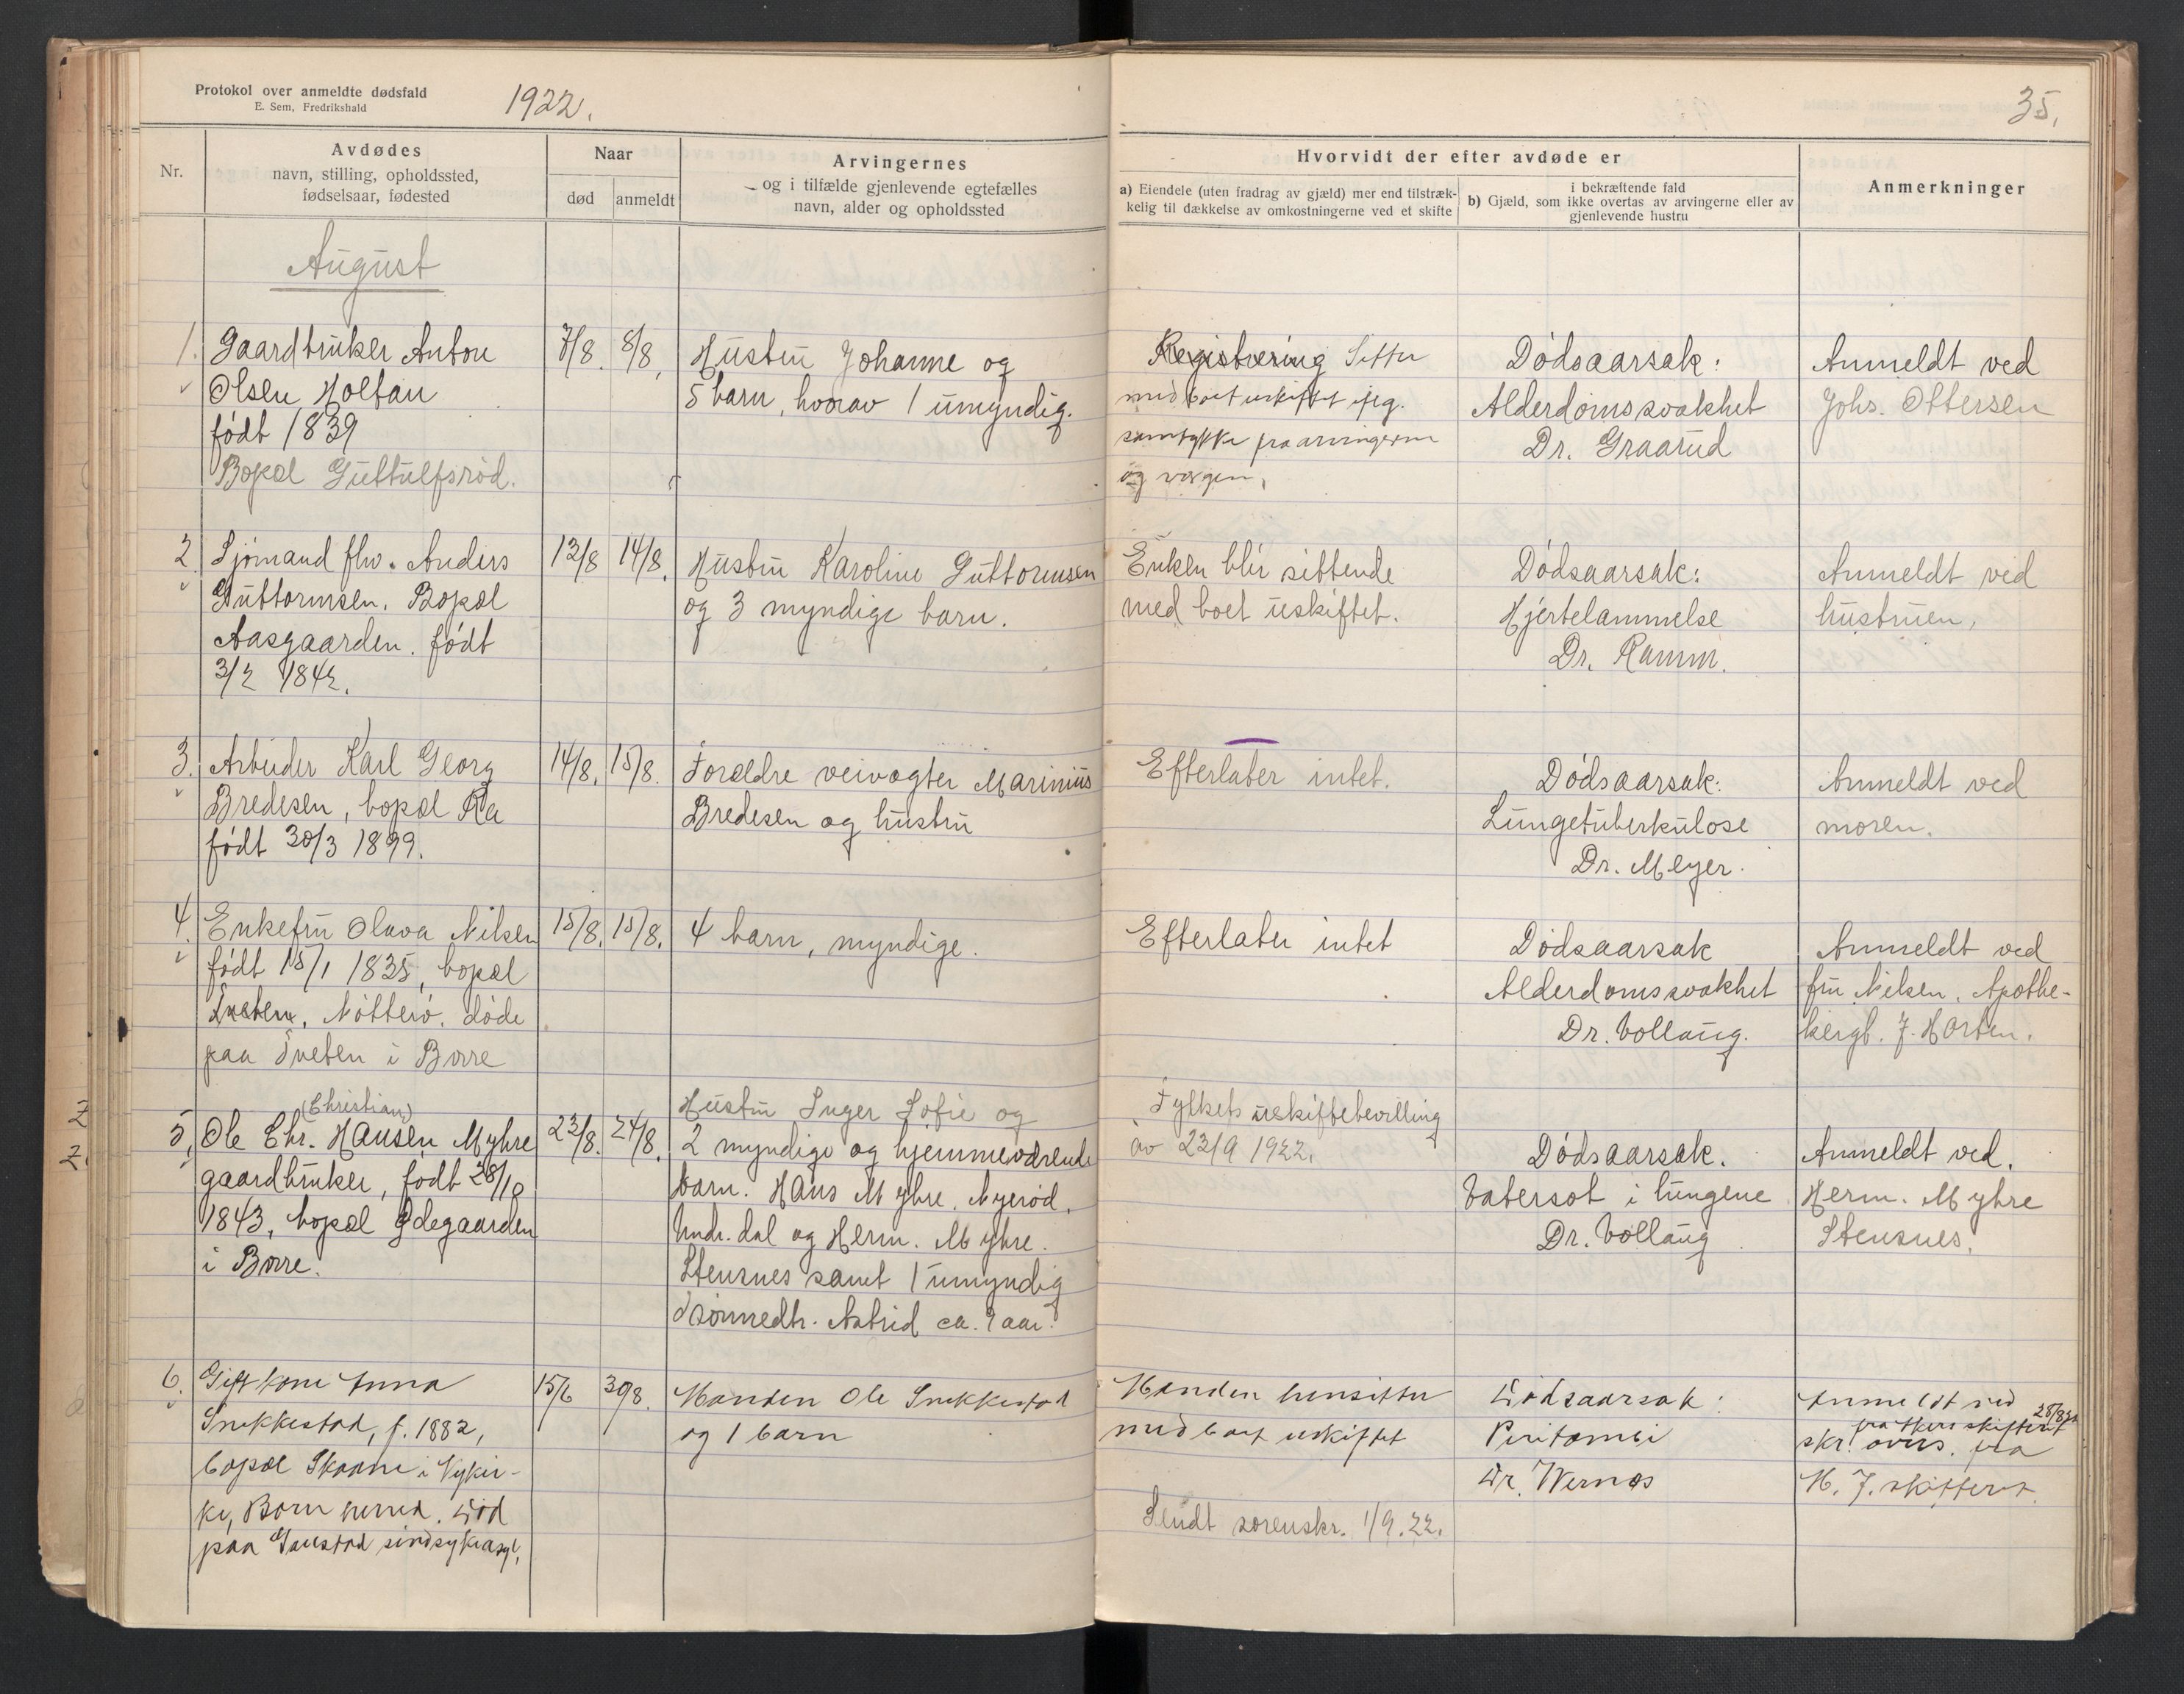 Protokol over anmeldte dødsfald
E. Sem, Fredrikshald
1922.
35.
Nr.
Avdødes
navn, stilling, opholdssted,
fødselsaar, fødested
Naar
død
anmeldt
Arvingernes
og i tilfælde gjenlevende egtefælles
navn, alder og opholdssted
Hvorvidt der efter avdøde er
a) Eiendele (uten fradrag av gjæld) mer end tilstræk-
kelig til dækkelse av omkostningerne ved et skifte
i bekræftende fald
b) Gjæld, som ikke overtas av arvingerne eller av
gjenlevende hustru
Anmerkninger
August
1.
Gaardbruker Anton
Olsen Holtan
født 1839
Bopæl Guttulfsrød.
7/8.
8/8.
Hustru Johanne og
5 barn, hvorav 1 umyndig.
Registrering Sitter
med boet uskiftet ifg.
samtykke fra arvingerne
og værgen.
Dødsaarsak:
Alderdomssvakhet
Dr. Graarud
Anmeldt ved
Johs. Ottersen
2.
Sjømand fhv. Anders
Guttormsen. Bopæl
Aasgaarden. født
3/2 1842.
13/8
14/8.
Hustru Karoline Guttormsen
og 3 myndige barn.
Enken blir sittende
med boet uskiftet.
Dødsaarsak:
Hjertelammelse
Dr. Ramm.
Anmeldt ved
hustruen.
3.
Arbeider Karl Georg
Bredesen, bopæl Ra
født 30/3 1899.
14/8.
15/8.
Forældre veivogter Marinius
Bredesen og hustru
Efterlater intet.
Dødsaarsak:
Lungetuberkulose
Dr. Meyer.
Anmeldt ved
moren.
4.
Enkefru Olava Nilsen
født 15/1 1835, bopæl
Nøtterø. døde
paa Tveten i Borre
15/8.
15/8.
4 barn, myndige.
Efterlater intet
Dødsaarsak
Alderdomssvakhet
Dr. Vollaug.
Anmeldt ved
fru Nilsen, Apothe-
kergt. 7. Horten.
5.
(Christian)
Ole Chr. Hansen Myhre
gaardbruker, født 28/10
1843, bopæl Ødegaarden
i Borre.
23/8.
24/8.
Hustru Inger Sofie og
2 myndige og hjemmeværende
barn. Hans Myhre. Nyerød,
Undr.dal og Herm. Myhre.
Stensnes samt 1 umyndig
sønnedtr. Astrid ca. 9 aar.
Fylkets uskiftebevilling
av 23/9 1922.
Dødsaarsak.
Vatersot i lungene
Dr. Vollaug
Anmeldt ved.
Herm. Myhre
Stensnes.
6.
Gift kone Anna
Snekkestad, f. 1882,
bopæl Skaane i Nykir-
ke, Borre herred. Død
paa Gaustad sindsykeasyl.
15/6
30/8.
Manden Ole Snekkestad
og 1 barn
Manden hensitter
med boet uskiftet
Sendt sorenskr. 1/9.22.
Dødsaarsak:
Dr. Wernøs
Anmeldt ved
28/8 22
skr. overs. fra
skifteret